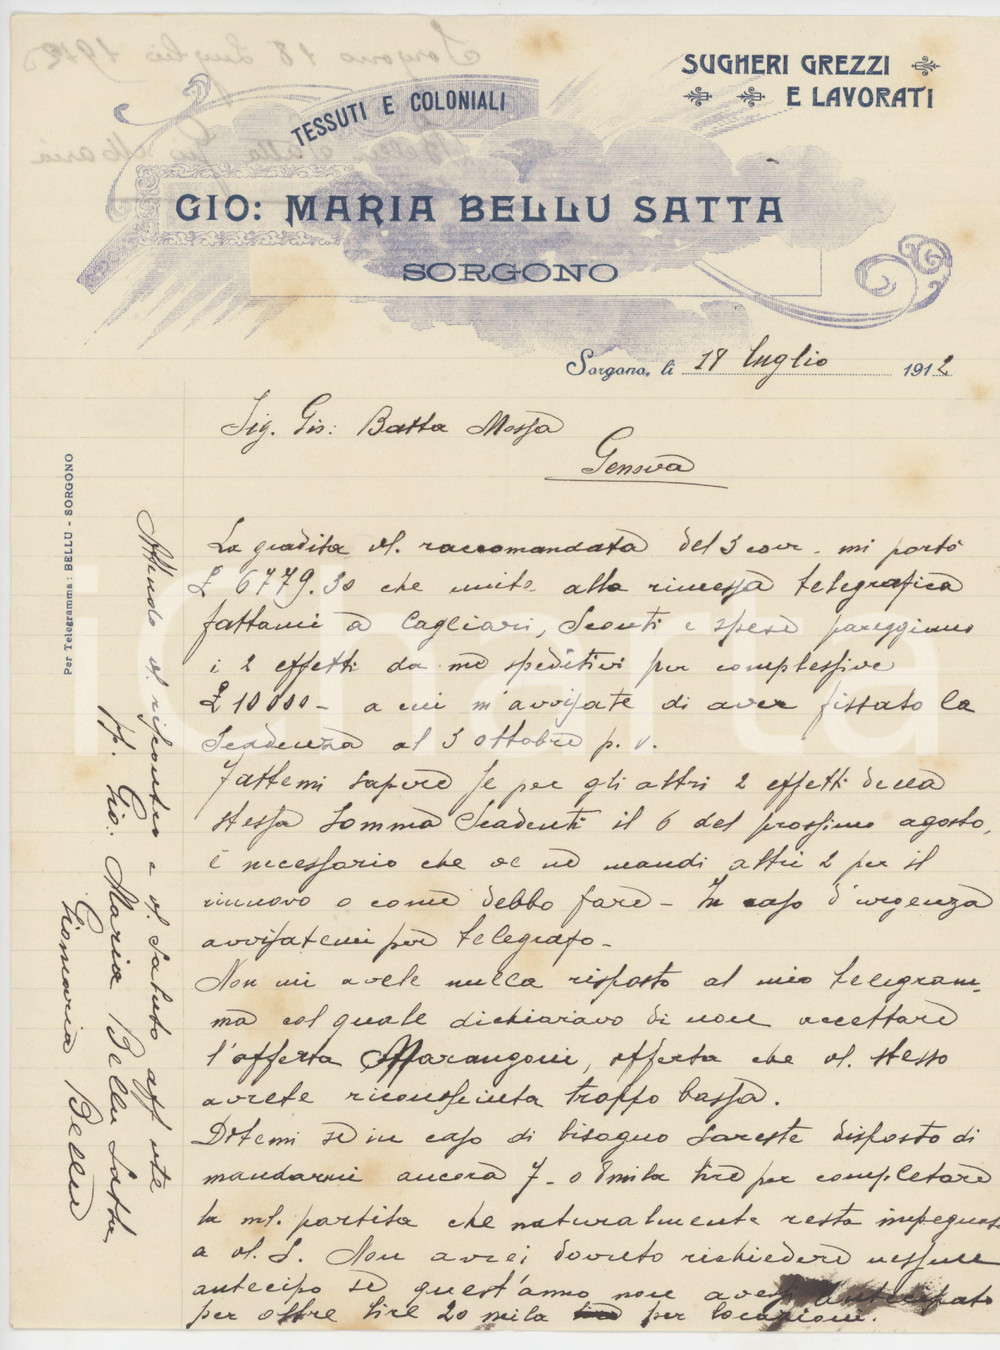 SUGHERI GREZZI
E LAVORATI
TESSUTI E COLONIALI
GIO: MARIA BELLU SATTA
SORGONO
Sorgono, li 18 luglio 1912
Sig. Gio: Batta Mossa
Genova
La gradita vs. raccomandata del 3 corr. mi portò
£ 6779.30 che unito alla rimessa telegrafica
fattami a Cagliari, Sconti e spese pareggiano
i 2 effetti da me speditivi per complessive
£ 10000 - a cui m'avvisate di aver fissato la
Scadenza al 3 ottobre p. v.
Fattemi sapere se per gli altri 2 effetti della
stessa somma Scadenti il 6 del prossimo agosto,
è necessario che ve ne mandi altri 2 per il
rinnovo o come debbo fare - In caso d'urgenza
avvisatemi per telegrafo -
Non mi avete nulla risposto al mio telegram-
ma col quale dichiaravo di non accettare
l'offerta Marangoni, offerta che vs. stesso
avrete riconosciuta troppo bassa.
Ditemi se in caso di bisogno sareste disposto di
mandarmi ancora 7 - o 8 mila lire per completare
la ms. partita che naturalmente resta impegnata
a vs. S. Non avrei dovuto richiedere nessun
antecipo se quest'anno non avessi antecipato
per oltre lire 20 mila per locazioni.
Per Telegramma: BELLU - SORGONO
Attendo vs. riscontro e vs. saluto aff.mte
pp. Gio: Maria Bellu Satta
Giomaria Bellu
icharta